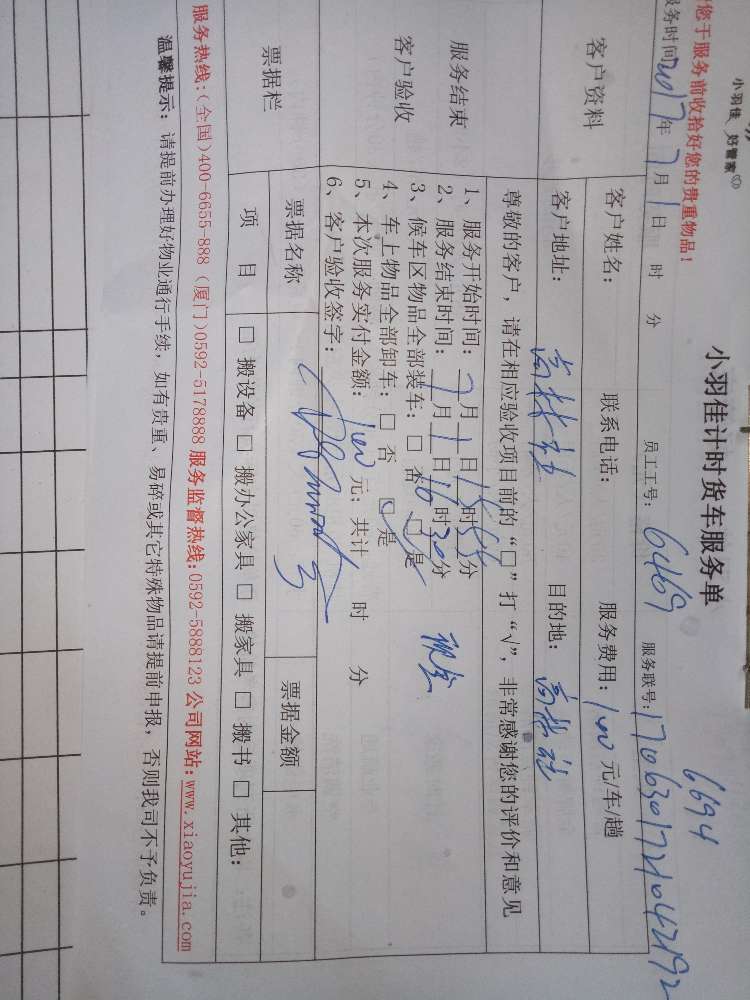 小羽佳 好管家
小羽佳计时货车服务单
您于服务前收拾好您的贵重物品!
6694
务时间2017年7月1日 时 分 员工工号: 6469 服务联号: 1706301721042192
客户资料
客户姓名: 联系电话: 服务费用: 100 元/车/趟
客户地址: 高林社 目的地: 高林社
服务结束
客户验收
尊敬的客户,请在相应验收项目前的“□”打“√”,非常感谢您的评价和意见
1、服务开始时间: 7月1日15时55分
2、服务结束时间: 7月1日16时30分
3、候车区物品全部装车: □ 否 □ 是
4、车上物品全部卸车: □ 否 □ 是
现金
5、本次服务实付金额: 100 元; 共计 时 分
6、客户验收签字:
票据栏
票据名称 票据金额
项 目 □ 搬设备 □ 搬办公家具 □ 搬家具 □ 搬书 □ 其他:
服务热线:(全国)400-6655-888 (厦门)0592-5178888 服务监督热线:0592-5888123 公司网站:www.xiaoyujia.com
温馨提示: 请提前办理好物业通行手续, 如有贵重、易碎或其它特殊物品请提前申报, 否则我司不予负责。